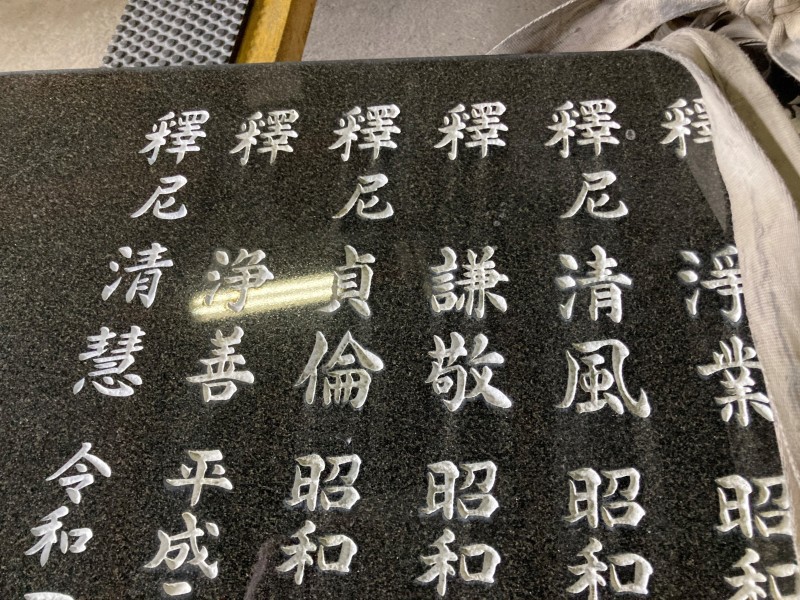 釋淨業昭和
釋尼清風昭和
釋謙敬昭和
釋尼貞倫昭和
釋浄善平成
釋尼清慧令和